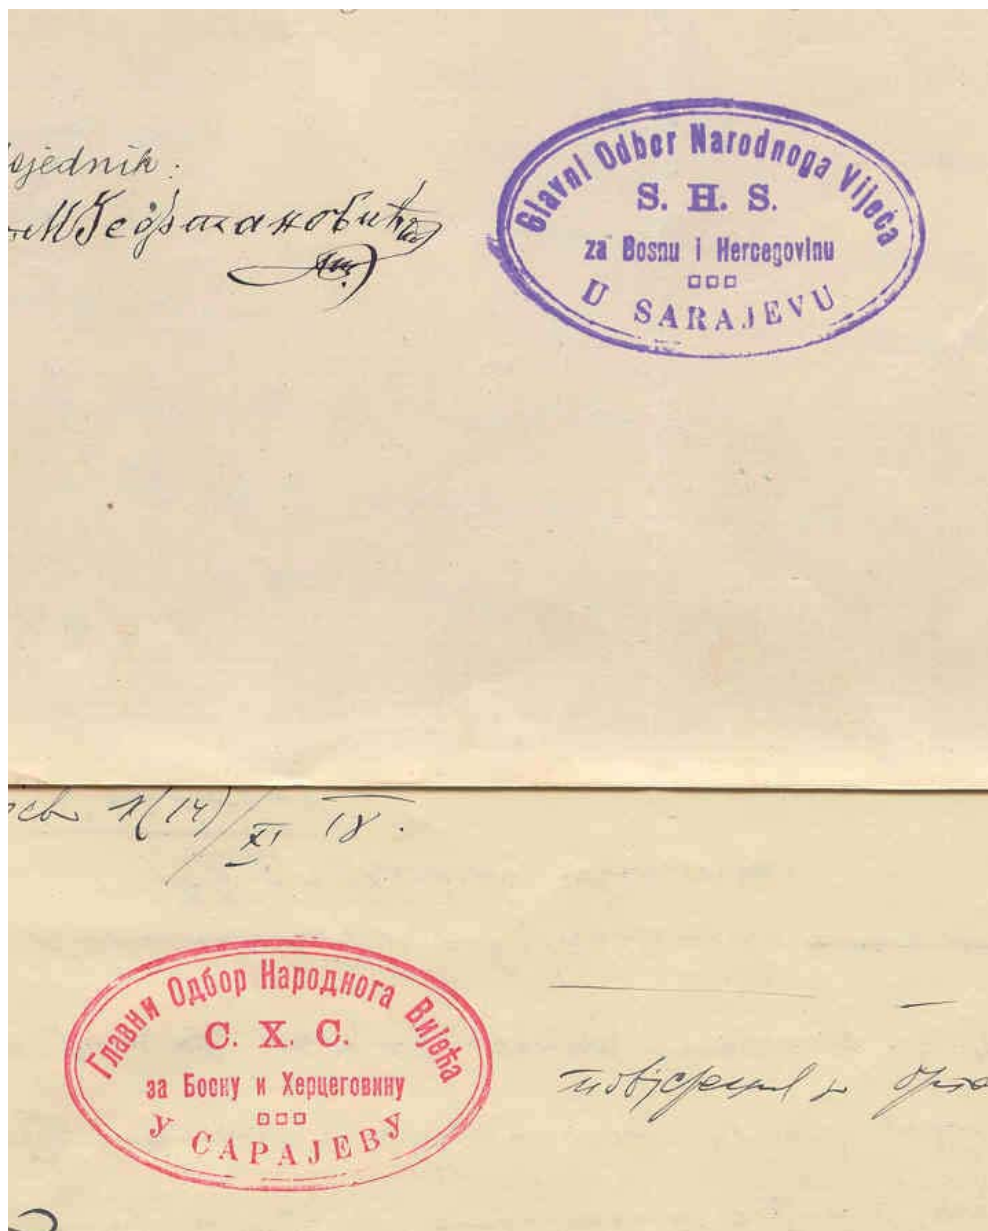 sjednik:
Glavni Odbor Narodnoga Vijeća
S. H. S.
za Bosnu i Hercegovinu
U SARAJEVU
1(14)/XI 18.
Главни Одбор Народнога Вијећа
С. Х. С.
за Босну и Херцеговину
У САРАЈЕВУ